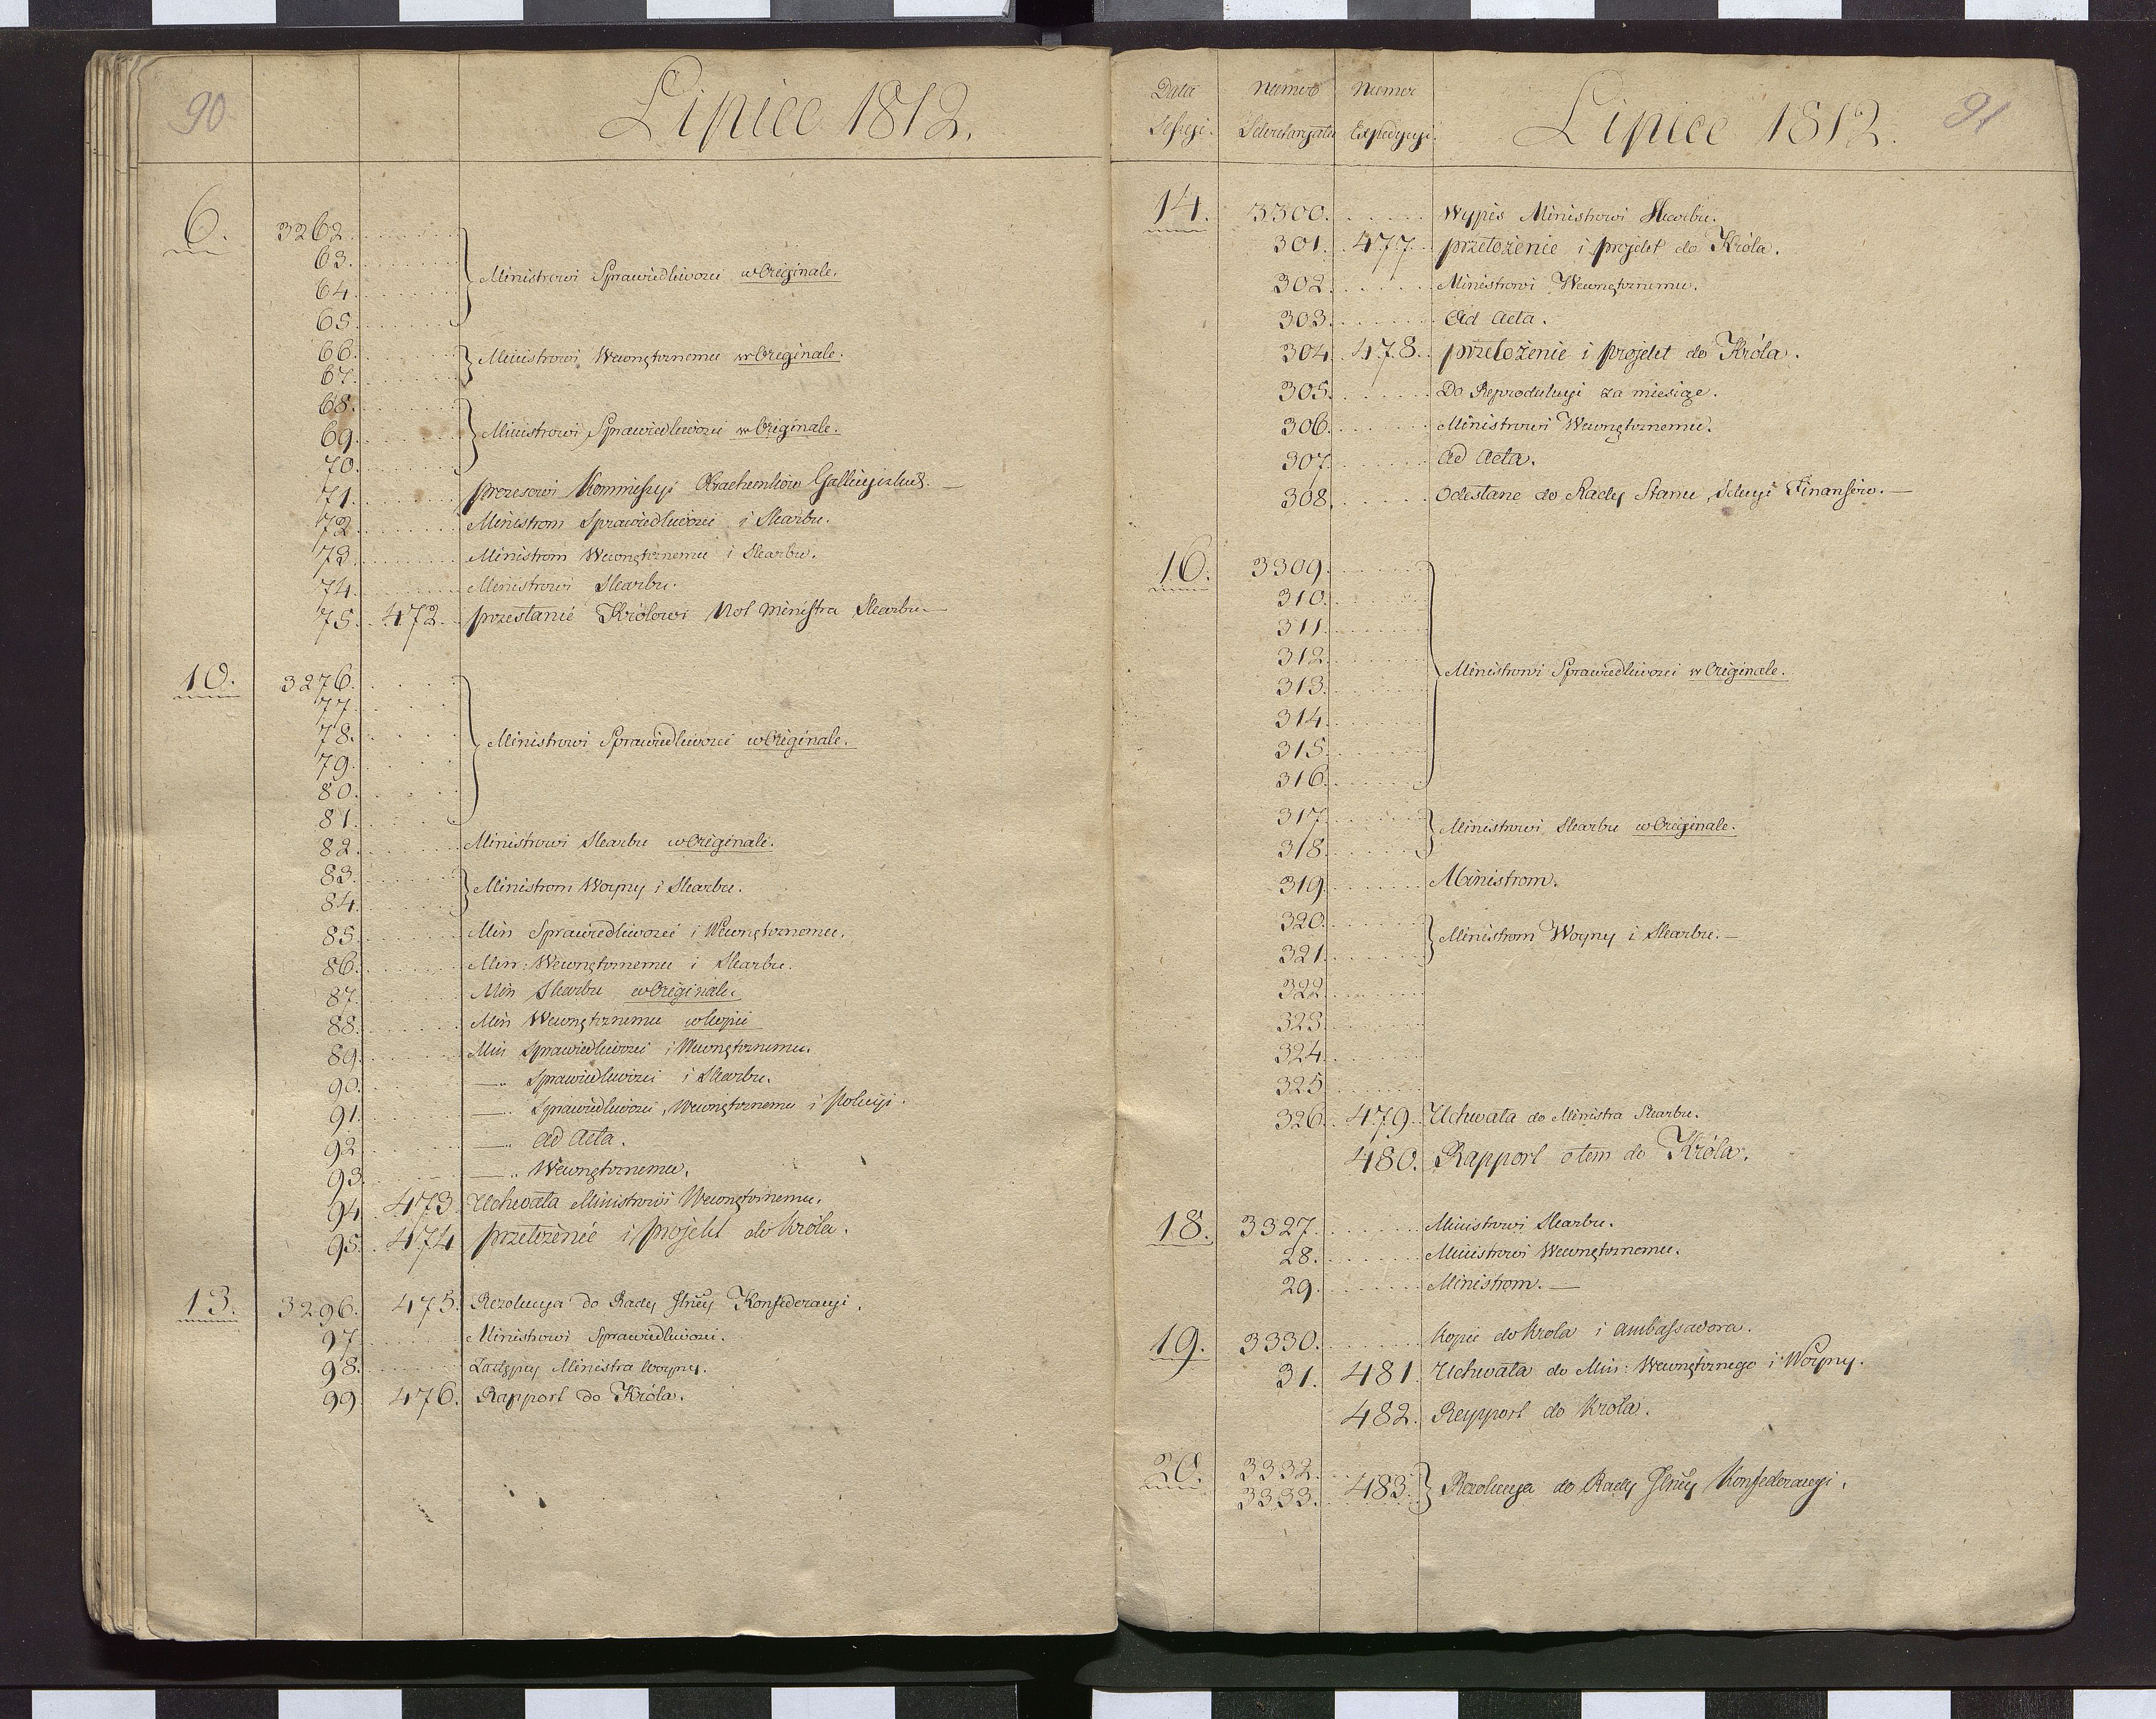 90
Lipiec 1812.
6. 3262.
63.
64.
65.
Ministrowi Sprawiedliwości w Originale.
66.
67.
Ministrowi Wewnętrznemu w Originale.
68.
69.
70.
Ministrowi Sprawiedliwości w Originale.
71. prezesowi Kommissyi Obrachunków Gallicyiskich. —
72. Ministrom Sprawiedliwości i Skarbu.
73. Ministrom Wewnętrznemu i Skarbu.
74. Ministrowi Skarbu.
75. 472. przesłanie Królowi Not Ministra Skarbu. —
10. 3276.
77.
78.
79.
80.
81.
Ministrowi Sprawiedliwości w Originale.
82. Ministrowi Skarbu w Originale.
83.
84.
Ministrom Woyny i Skarbu.
85. Min Sprawiedliwości i Wewnętrznemu.
86. Min: Wewnętrznemu i Skarbu.
87. Min Skarbu w Originale.
88. Min Wewnętrznemu w kopii
89. Min Sprawiedliwości i Wewnętrznemu.
90. —. Sprawiedliwości i Skarbu.
91. —. Sprawiedliwości, Wewnętrznemu i Policyi.
92. —. Ad Acta.
93. —. Wewnętrznemu.
94. 473. Uchwała Ministrowi Wewnętrznemu.
95. 474. przełożenie i projekt do Króla.
13. 3296. 475. Rezolucya do Rady Jlney Konfederacyi.
97. Ministrowi Sprawiedliwości.
98. Zastępcy Ministra Woyny.
99. 476. Rapport do Króla.
Data Sessyi. Numer Sekretaryatu Numer Expedycyi. Lipiec 1812. 91
14. 3300. Wypis Ministrowi Skarbu.
301. 477. przełożenie i projekt do Króla.
302. Ministrowi Wewnętrznemu.
303. Ad Acta.
304. 478. przełożenie i projekt do Króla.
305. Do Reprodukcyi za miesiąc.
306. Ministrowi Wewnętrznemu.
307. Ad Acta.
308. Odesłane do Rady Stanu, Sekcyi Finansów. —
16. 3309.
310.
311.
312.
313.
314.
315.
316.
Ministrowi Sprawiedliwości w Originale.
317.
318.
Ministrowi Skarbu w Originale.
319. Ministrom.
320.
321.
Ministrom Woyny i Skarbu. —
322
323
324
325
326. 479. Uchwała do Ministra Skarbu.
480. Rapport o tem do Króla.
18. 3327. Ministrowi Skarbu.
28. Ministrowi Wewnętrznemu.
29. Ministrom. —
19. 3330. Kopie do Króla i Ambassadora.
31. 481. Uchwała do Min: Wewnętrznego i Woyny.
482. Rapport do Króla.
20. 3332.
3333. 483. Rezolucya do Rady Jlney Konfederacyi.